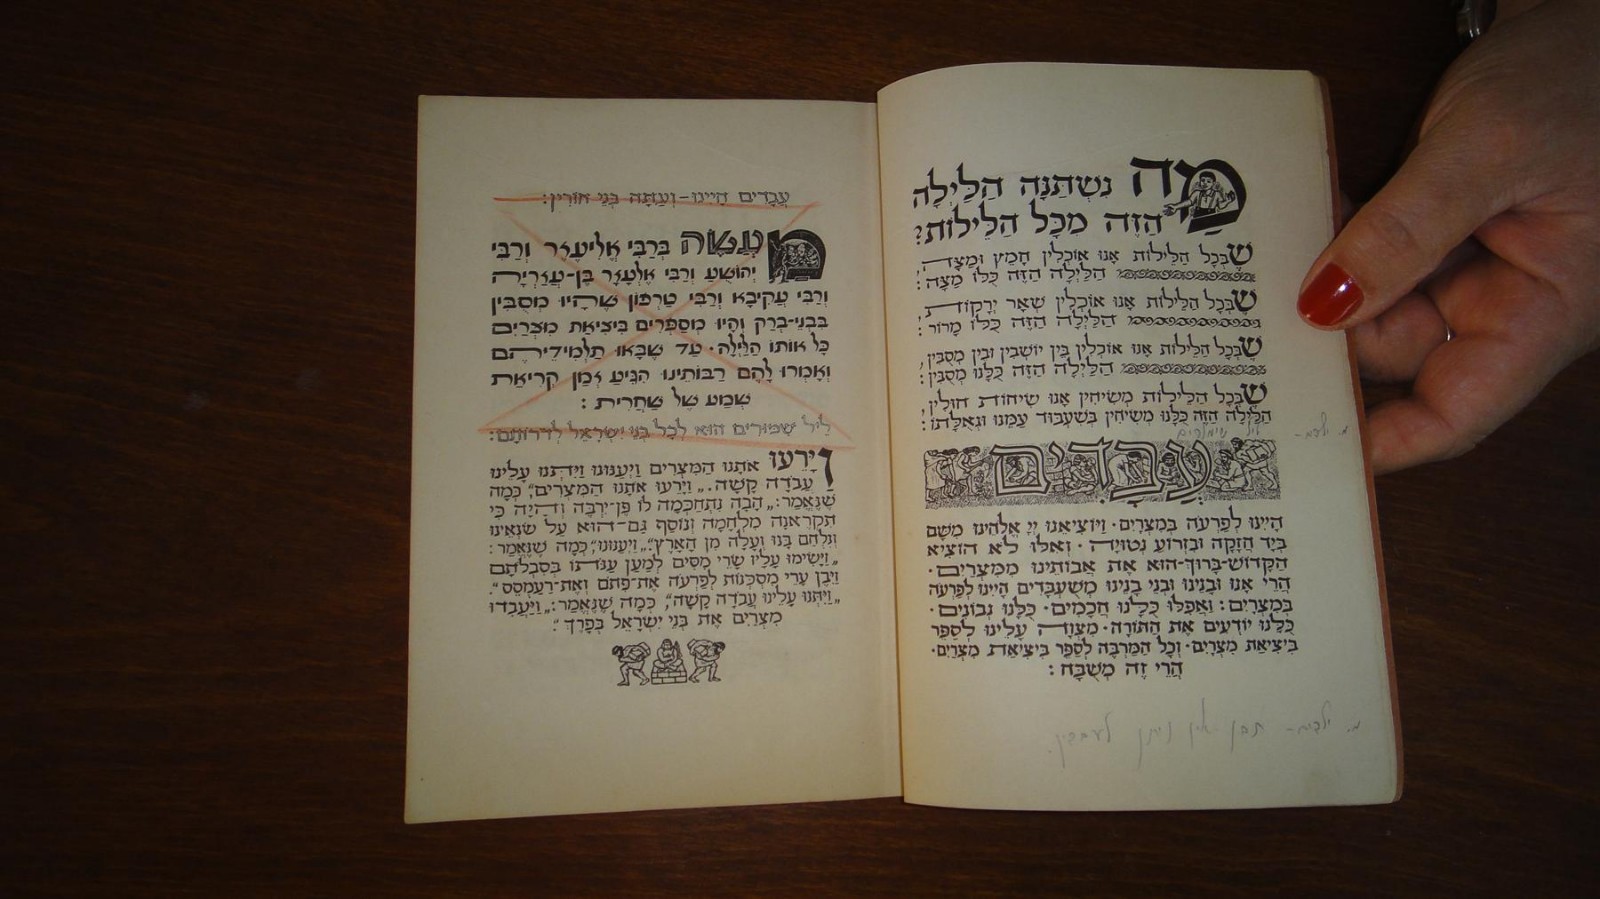 מַה נִשְׁתַּנָּה הַלַּיְלָה
הַזֶּה מִכָּל הַלֵּילוֹת?
שֶׁבְּכָל הַלֵּילוֹת אָנוּ אוֹכְלִין חָמֵץ וּמַצָּה,
הַלַּיְלָה הַזֶּה כֻּלּוֹ מַצָּה:
שֶׁבְּכָל הַלֵּילוֹת אָנוּ אוֹכְלִין שְׁאָר יְרָקוֹת
הַלַּיְלָה הַזֶּה כֻּלּוֹ מָרוֹר:
שֶׁבְּכָל הַלֵּילוֹת אָנוּ אוֹכְלִין בֵּין יוֹשְׁבִין וּבֵין מְסֻבִּין,
הַלַּיְלָה הַזֶּה כֻּלָּנוּ מְסֻבִּין:
שֶׁבְּכָל הַלֵּילוֹת מְשִׂיחִין אָנוּ שִׂיחוֹת חוּלִין,
הַלַּיְלָה הַזֶּה כֻּלָּנוּ מְשִׂיחִין בְּשִׁעְבּוּד עַמֵּנוּ וּגְאֻלָּתוֹ:
מ. ילדים -
עֲבָדִים
הָיִינוּ לְפַרְעֹה בְּמִצְרַיִם. וַיּוֹצִיאֵנוּ יְיָ אֱלֹהֵינוּ מִשָּׁם
בְּיָד חֲזָקָה וּבִזְרוֹעַ נְטוּיָה. וְאִלּוּ לֹא הוֹצִיא
הַקָּדוֹשׁ-בָּרוּךְ-הוּא אֶת אֲבוֹתֵינוּ מִמִּצְרַיִם.
הֲרֵי אָנוּ וּבָנֵינוּ וּבְנֵי בָנֵינוּ מְשֻׁעְבָּדִים הָיִינוּ לְפַרְעֹה
בְּמִצְרַיִם: וַאֲפִלּוּ כֻּלָּנוּ חֲכָמִים. כֻּלָּנוּ נְבוֹנִים.
כֻּלָּנוּ יוֹדְעִים אֶת הַתּוֹרָה. מִצְוָה עָלֵינוּ לְסַפֵּר
בִּיצִיאַת מִצְרַיִם. וְכָל הַמַּרְבֶּה לְסַפֵּר בִּיצִיאַת מִצְרַיִם.
הֲרֵי זֶה מְשֻׁבָּח:
מ. ילדים - תבן אין ניתן לעבדיך.
עֲבָדִים הָיִינוּ - וְעַתָּה בְּנֵי חוֹרִין:
מַעֲשֶׂה בְּרַבִּי אֱלִיעֶזֶר וְרַבִּי
יְהוֹשֻׁעַ וְרַבִּי אֶלְעָזָר בֶּן-עֲזַרְיָה
וְרַבִּי עֲקִיבָא וְרַבִּי טַרְפוֹן שֶׁהָיוּ מְסֻבִּין
בִּבְנֵי-בְרַק וְהָיוּ מְסַפְּרִים בִּיצִיאַת מִצְרַיִם
כָּל אוֹתוֹ הַלַּיְלָה. עַד שֶׁבָּאוּ תַלְמִידֵיהֶם
וְאָמְרוּ לָהֶם רַבּוֹתֵינוּ הִגִּיעַ זְמַן קְרִיאַת
שְׁמַע שֶׁל שַׁחֲרִית:
לֵיל שִׁמּוּרִים הוּא לְכָל בְּנֵי יִשְׂרָאֵל לְדֹרֹתָם:
וַיָּרֵעוּ אֹתָנוּ הַמִּצְרִים וַיְעַנּוּנוּ וַיִּתְּנוּ עָלֵינוּ
עֲבֹדָה קָשָׁה. "וַיָּרֵעוּ אֹתָנוּ הַמִּצְרִים", כְּמָה
שֶׁנֶּאֱמַר: "הָבָה נִתְחַכְּמָה לוֹ פֶּן-יִרְבֶּה וְהָיָה כִּי
תִקְרֶאנָה מִלְחָמָה וְנוֹסַף גַּם-הוּא עַל שֹׂנְאֵינוּ
וְנִלְחַם בָּנוּ וְעָלָה מִן הָאָרֶץ". "וַיְעַנּוּנוּ", כְּמָה שֶׁנֶּאֱמַר:
"וַיָּשִׂימוּ עָלָיו שָׂרֵי מִסִּים לְמַעַן עַנֹּתוֹ בְּסִבְלֹתָם
וַיִּבֶן עָרֵי מִסְכְּנוֹת לְפַרְעֹה אֶת-פִּתֹם וְאֶת-רַעַמְסֵס".
"וַיִּתְּנוּ עָלֵינוּ עֲבֹדָה קָשָׁה", כְּמָה שֶׁנֶּאֱמַר: "וַיַּעֲבִדוּ
מִצְרַיִם אֶת בְּנֵי יִשְׂרָאֵל בְּפָרֶךְ".